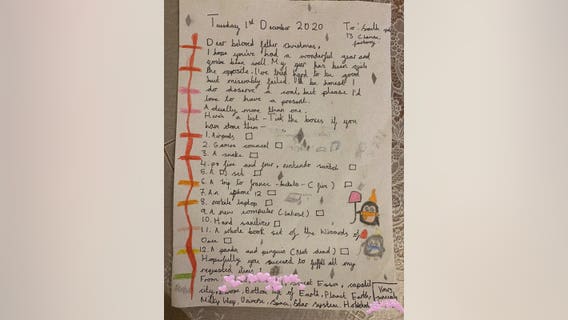 Tuesday 1st December 2020
To: Santa
13
factory
Dear beloved father Christmas,
I hope you've had a wonderful year and
you've been well. My year has been quite
the opposite. I've tried hard to be good
but miserably failed. I'll be honest I
do deserve a coal, but please I'd
love to have a present.
Actually more than one.
Here's a list - Tick the boxes if you
have done them -
1. Airpods
2. Games
3. A snake
4. ps five and four, nintendo switch
5. A set
6. A trip to france - (fun)
7. An iphone 12
8. laptop
9. A new computer (latest)
10. Hand sanitizer
11. A whole book set of the Wizards of
Once
12. A panda and penguin (Not dead)
Hopefully you succeed to fulfil all my
requested items
From Essex, capital
city, Bottom of Earth, Planet Earth,
Milky Way, Universe, Space, Solar system.
Yours